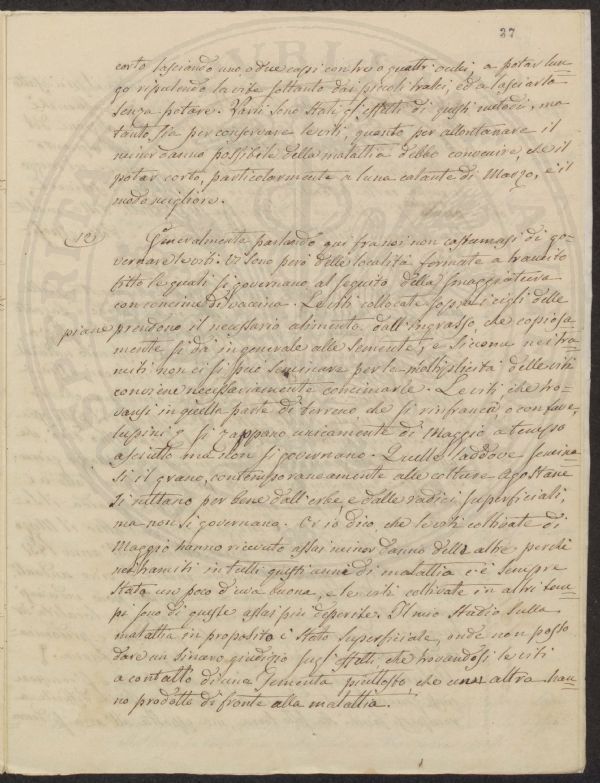 37
corto lasciando uno, o due cassi con tre o quattro occhi, a potar lun=
go ripulendo la vite soltanto dai piccoli tralci, ed a lasciarla
senza potare. Varii sono stati gl'effetti di questi metodi, ma
tanto sia per conservare le viti, quanto per allontanare il
minor danno possibile della malattia debbo convenire, che il
potar corto, particolarmente a luna calante di Marzo, è il
modo migliore.
12) Generalmente parlando qui fra noi non costumasi di go=
vernare le viti. Vi sono però delle località formate a
fitto le quali si governano al seguito della
con concime di vaccina. Le viti collocate sopra i cigli delle
piane prendono il necessario alimento dall'ingrasso, che copiosa
mente si dà in generale alle sementi, e siccome nei tra
miti non ci si può seminare per la moltiplicità delle viti
conviene necessariamente concimarle. Le viti, che tro=
vansi in quella parte di terreno che si rinfranca, o con fave
lupini si zappano unicamente di Maggio a tempo
asciutto ma non si governano. Quelle laddove semina
si il grano, contemporaneamente alle colture Agostane
si nettano per bene dall'erbe, e dalle radici superficiali,
ma non si governano. Or io dico, che le viti coltivate di
Maggio hanno ricevuto assai minor danno delle altre perchè
nei tramiti in tutti questi anni di malattia c'è sempre
stata un poco d'uva buona, e le viti coltivate in altri tem=
pi sono di quelle assai più deperite. Il mio studio sulla
malattia in proposito è stato superficiale, onde non posso
dare un sincero giudizio sugl'effetti, che trovandosi le viti
a contatto di una sementa piuttosto, che un altra han=
no prodotto di fronte alla malattia.